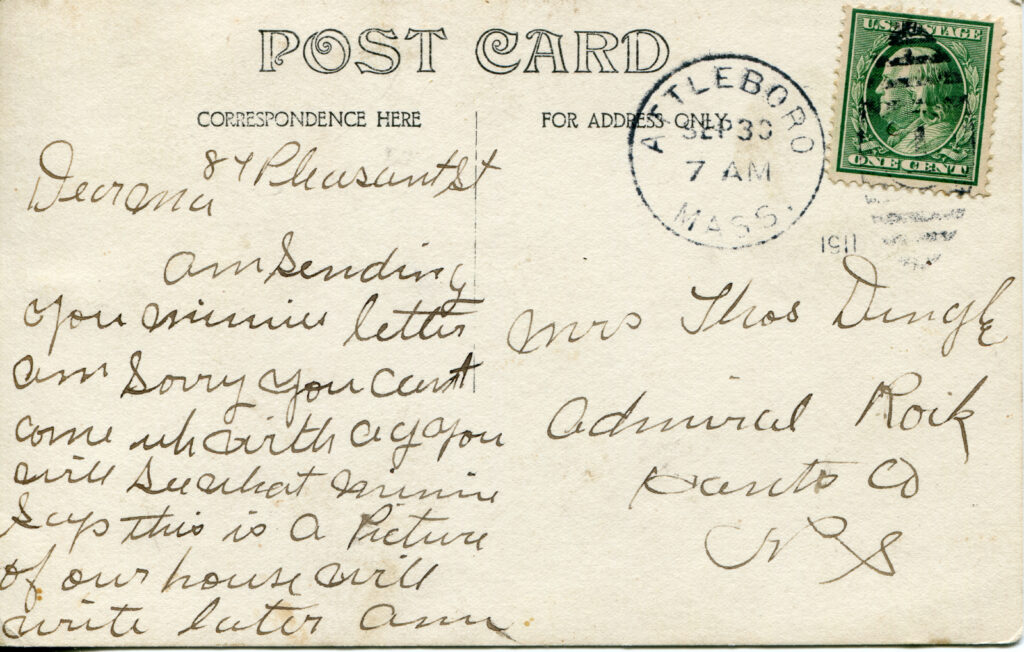 POST CARD
CORRESPONDENCE HERE
FOR ADDRESS ONLY
U.S. POSTAGE
ONE CENT
ATTLEBORO
SEP 30
7 AM
MASS.
1911
Pleasant St
Dear Ma
am Sending
you minnie letter
am Sorry you cant
come you
will See what minnie
Says this is a Picture
of our house will
write later Ann
Mrs Thos Dingle
Admiral Rock
Hants Co
N S